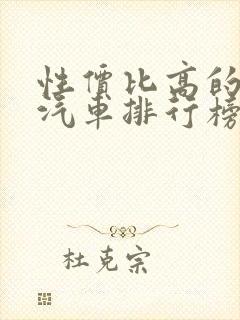 性價比高的
汽車排行榜
杜克宗